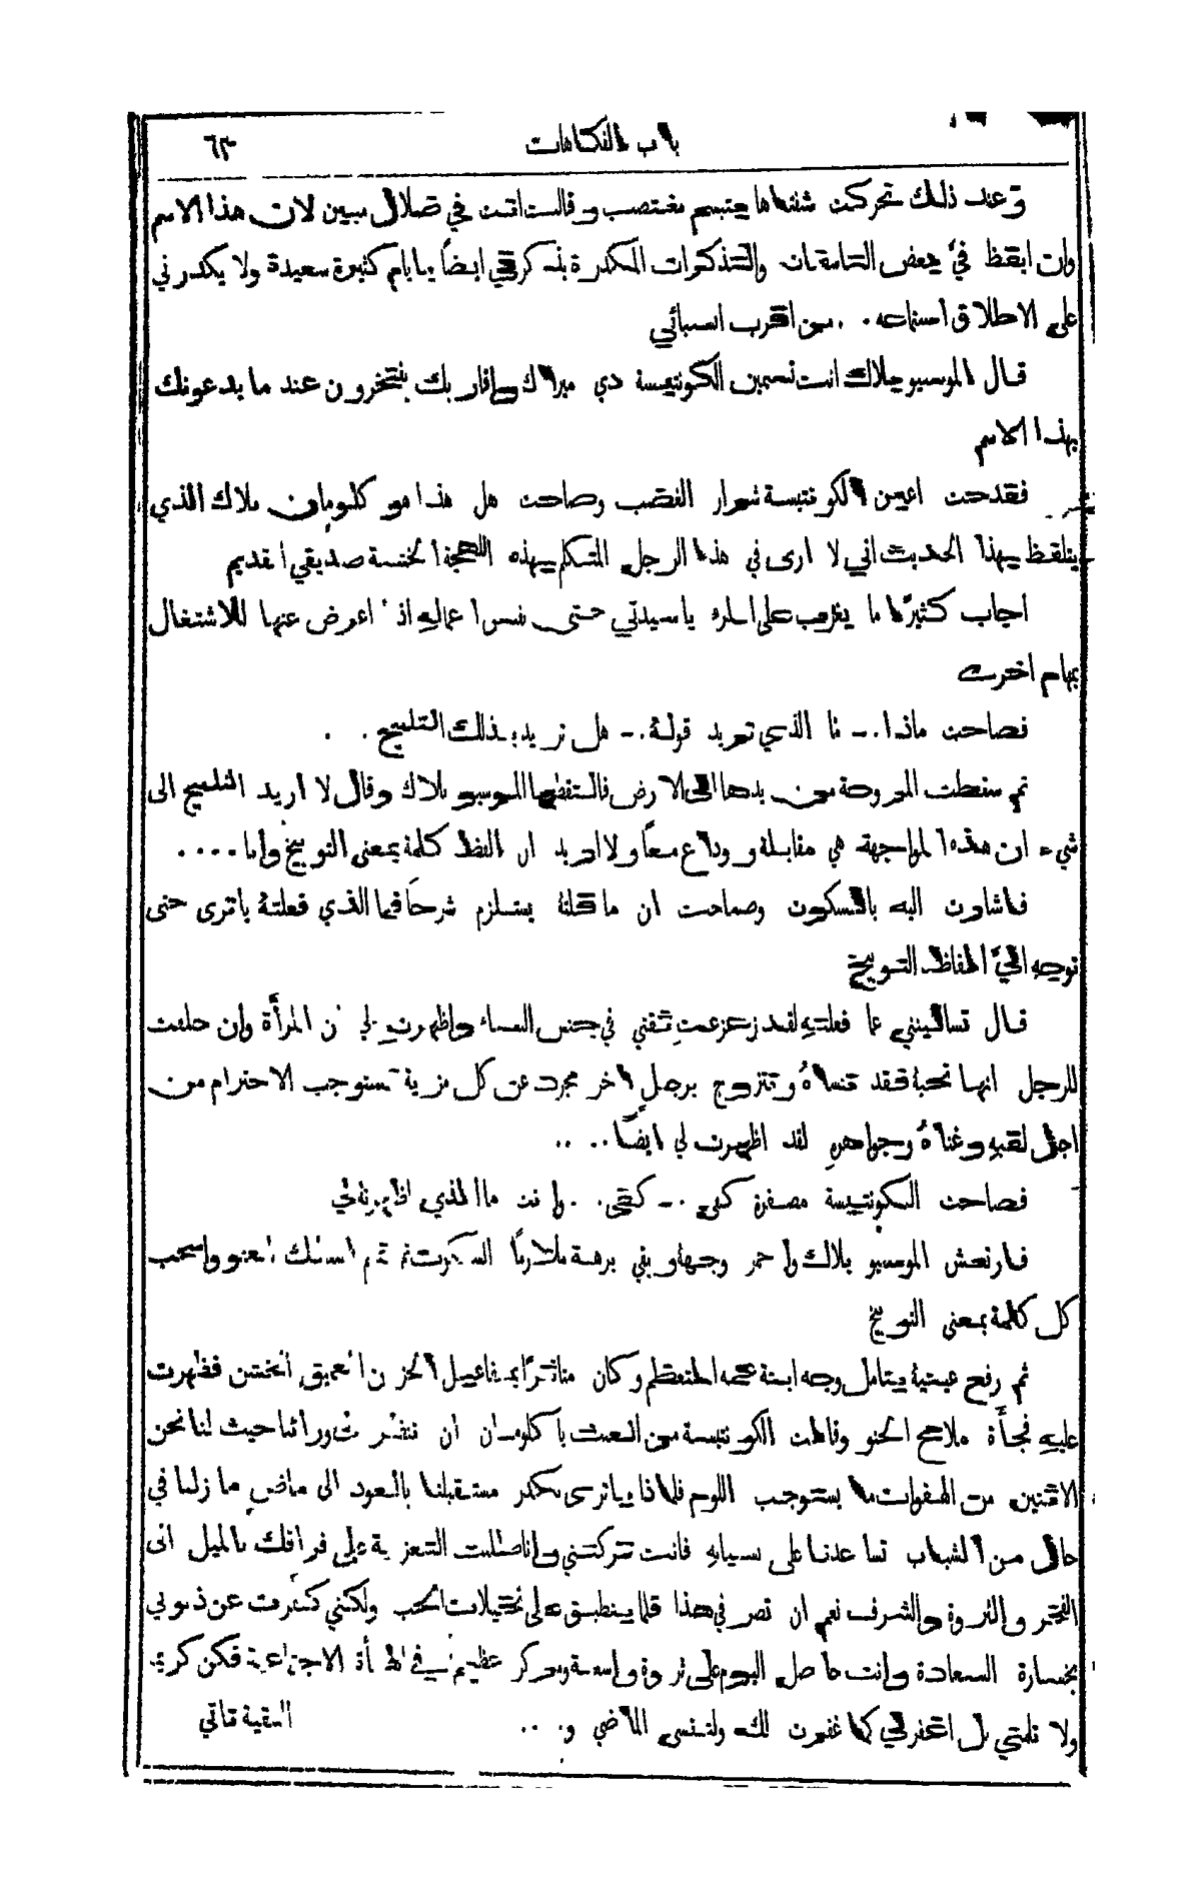 باب الفكاهات ٦٣
وعند ذلك تحركت شفتاها بتبسم مغتصب وقالت انت في ضلال مبين لان هذا الاسم
وان ايقظ فيَّ بعض التأسفات والتذكرات المكدرة يذكرني ايضاً بايام كثيرة سعيدة ولا يكدرني
على الاطلاق استماعه. . من اقرب انسبائي
قال الموسيو بلاك انت تسمين الكونتيسة دي ميراك واقاربك يفتخرون عند ما يدعونك
بهذا الاسم
فقدحت اعين الكونتيسة شرار الغضب وصاحت هل هذا هو كلومان بلاك الذي
يتلفظ بهذا الحديث اني لا ارى في هذا الرجل المتكلم بهذه اللهجة الخشنة صديقي القديم
اجاب كثيرًا ما يغرب على المرء يا سيدتي حتى نفس اعماله اذا اعرض عنها للاشتغال
بمهام اخرى
فصاحت ماذا.ـ ما الذي تريد قولهُ.ـ هل تريد بذلك التلميح. .
ثم سقطت المروحة من يدها الى الارض فالتقطها الموسيو بلاك وقال لا اريد التلميح الى
شيء ان هذه المواجهة هي مقابلة ووداع معاً ولا اريد ان الفظ كلمة بمعنى التوبيخ وانا....
فاشارت اليه بالسكوت وصاحت ان ما قلتهُ يستلزم شرحاً فما الذي فعلتهُ يا ترى حتى
توجه اليَّ الفاظ التوبيخ
قال تسألينني عما فعلتِهِ لقد زعزعتِ ثقتي في جنس النساء واظهرتِ لي ان المرأة وان حلفت
للرجل انها تحبهُ فقد تنساهُ وتتزوج برجلٍ آخر مجرد عن كل مزية تستوجب الاحترام من
اجل لقبهِ وغناهُ وجواهرهِ لقد اظهرت لي ايضاً. . ..
فصاحت الكونتيسة مصفرة كفى .ـ كفى. . وانت ما الذي اظهرتهُ لي
فارتعش الموسيو بلاك واحمر وجهه وبقي برهة ملازمًا السكوت ثم تمتم اسئلك العفو واسحب
كل كلمة بمعنى التوبيخ
ثم رفع عينيهِ يتأمل وجه ابنة عمه المتعظم وكان متأثرًا بمفاعيل الحزن العميق الخشن فظهرت
عليهِ فجأَة ملامح الحنو وقالت الكونتيسة من العبث يا كلومان ان نفتش وراءنا حيث لنا نحن
الاثنين من الهفوات ما يستوجب اللوم فلماذا يا ترى نكدر مستقبلنا بالعود الى ماضٍ ما زلنا في
حال من الشباب تساعدنا على نسيانهِ فانت تركتني وانا طلبت التعزية على فراقك بالميل الى
الفخر والثروة والشرف نعم ان تصرفي هذا قلما ينطبق على تخيلات الحب ولكنني كفّرت عن ذنوبي
بخسارة السعادة وانت حاصل اليوم على ثروة واسعة ومركز عظيم في الهيأة الاجتماعية فكن كريمًا
ولا تلمني بل اغفر لي كما غفرت لك ولننسى الماضي و. .. البقية تأتي